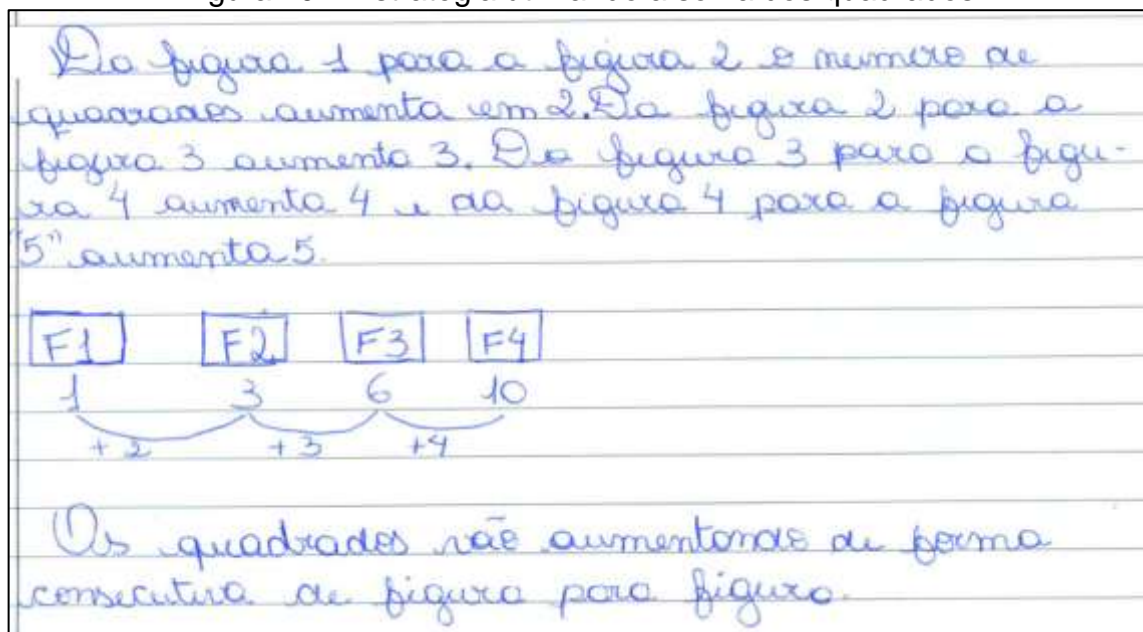 Da figura 1 para a figura 2 o numero de
quadrados aumenta em 2. Da figura 2 para a
figura 3 aumenta 3. Da figura 3 para a figu-
ra 4 aumenta 4 e da figura 4 para a figura
"5" aumenta 5.
F1 F2 F3 F4
1 3 6 10
+2 +3 +4
Os quadrados vão aumentando de forma
consecutiva de figura para figura.